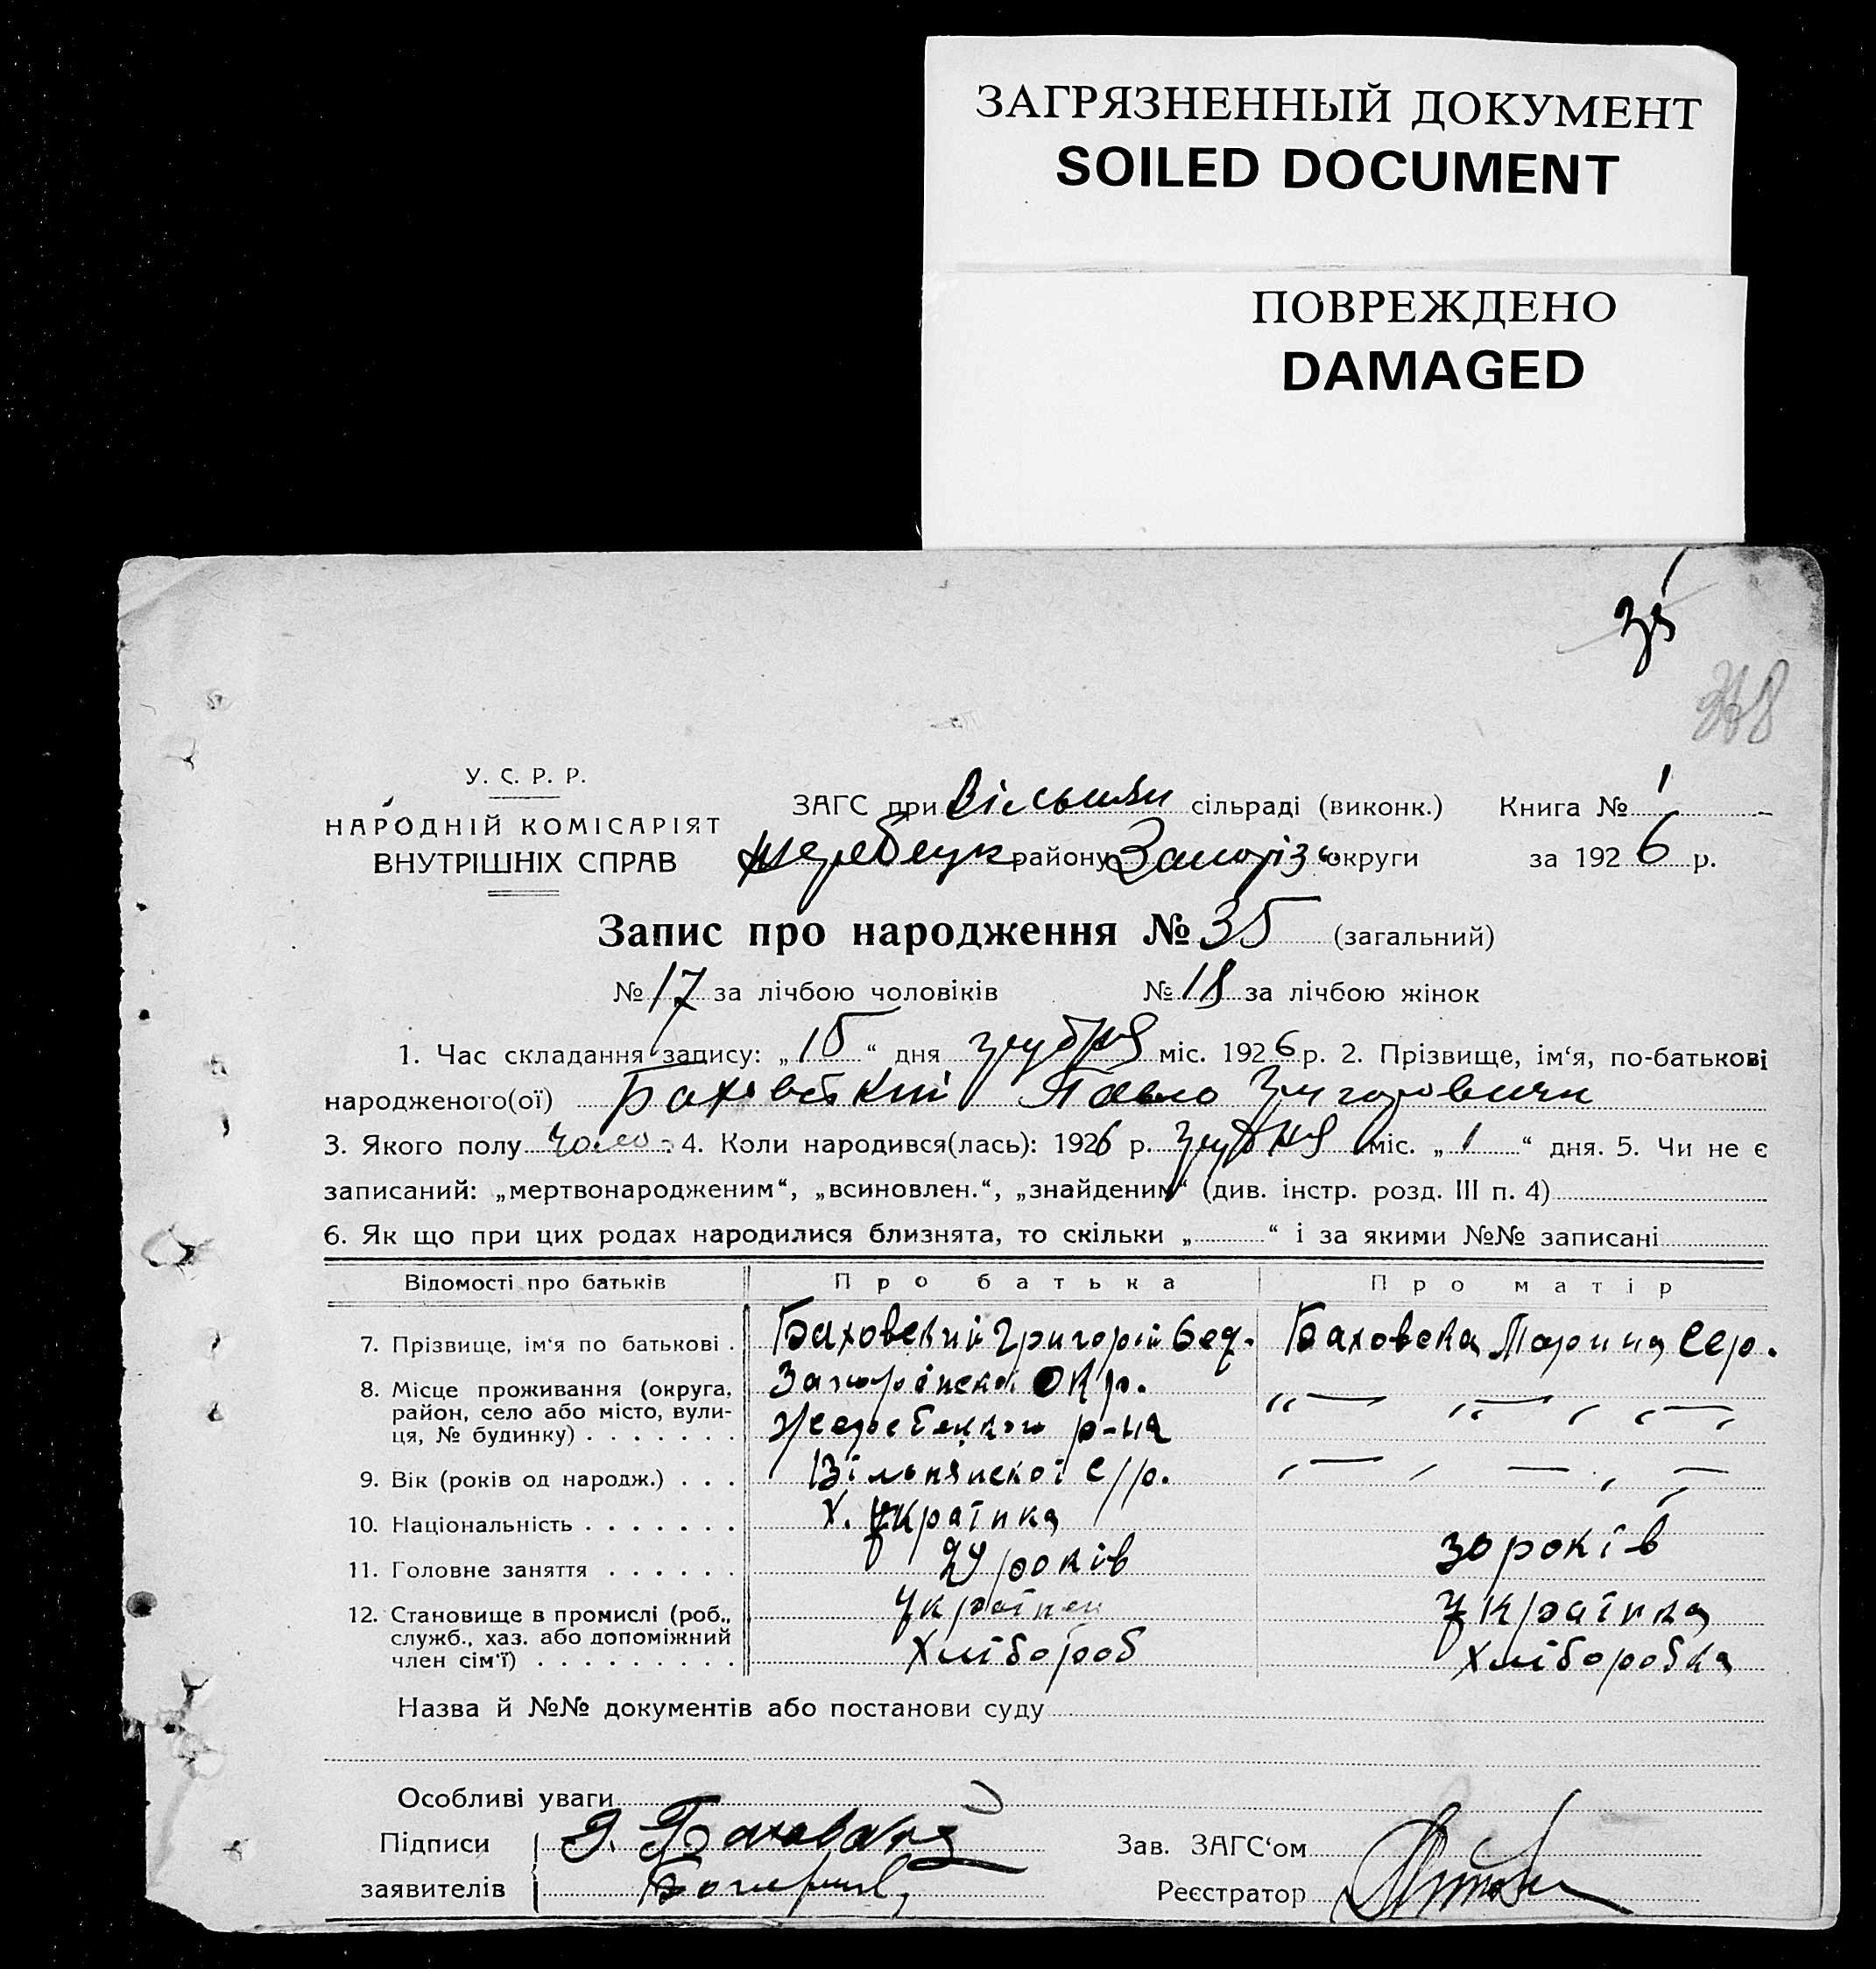 ЗАГРЯЗНЕННЫЙ ДОКУМЕНТ
SOILED DOCUMENT
ПОВРЕЖДЕНО
DAMAGED
35
У. С. Р. Р.
НАРОДНІЙ КОМІСАРІЯТ
ВНУТРІШНІХ СПРАВ
ЗАГС при сільраді (виконк.) Книга № 1
району Запоріз. округи за 1926 р.
Запис про народження № 35 (загальний)
№ 17 за лічбою чоловіків № 18 за лічбою жінок
1. Час складання запису: „15“ дня грудня міс. 1926 р. 2. Прізвище, ім‘я, по-батькові
народженого(ої) Баховський Павло Григорович
3. Якого полу чолов. 4. Коли народився(лась): 1926 р. грудня міс. „1“ дня. 5. Чи не є
записаний: „мертвонародженим“, „всиновлен.“, „знайденим“ (див. інстр. розд. III п. 4)
6. Як що при цих родах народилися близнята, то скільки „ “ і за якими №№ записані
Відомості про батьків Про батька Про матір
7. Прізвище, ім‘я по батькові . Баховский Григорій Баховска Марина Сер.
8. Місце проживання (округа, район, село або місто, вули-ця, № будинку) . . . . . . . Запорізской Окр.
Жеребецкого р-на
9. Вік (років од народж.) . . . Вільнянской с/р.
10. Національність . . . . . . . х. Українка
11. Головне заняття . . . . . . років 30 років
12. Становище в промислі (роб., служб., хаз. або допоміжний член сім‘ї) . . . . . . . . . Українец Українка
Хлібороб Хліборобка
Назва й №№ документів або постанови суду
Особливі уваги
Підписи Г. Баховский Зав. ЗАГС‘ом
заявителів Реєстратор